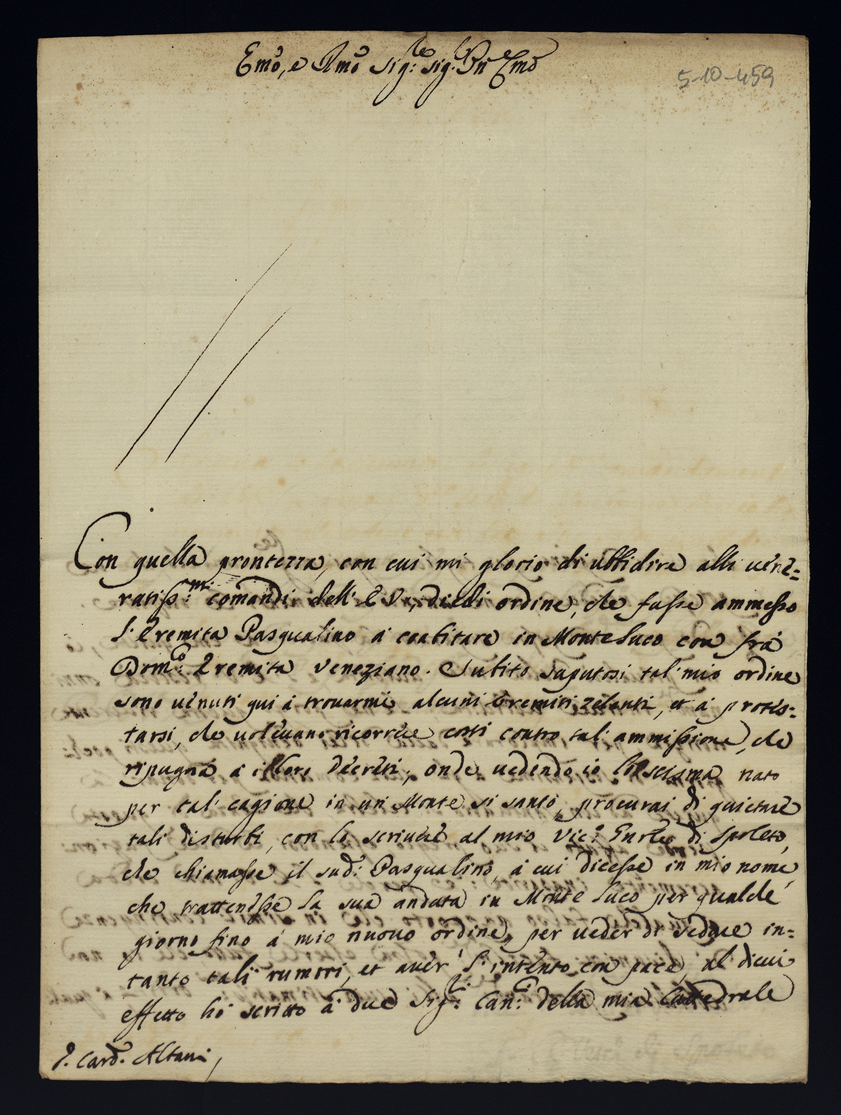 Emo, e Rmo Sig.re Sig. Pn Emo
5-10-459
Con quella prontezza, con cui mi glorio di ubbidire alli vene=
ratiss.mi comandi dell' E.V., diedi ordine, che fusse ammesso
l'Eremita Pasqualino à coabitare in Monte Luco con frà
Dom.co Eremita Veneziano. Subito saputosi tal mio ordine
sono venuti qui à trovarmi alcuni Eremiti zelanti, et à protes=
tarsi, che volevano ricorrere costì contro tal' ammissione, che
ripugna à i loro decreti, onde vedendo io lo scisma nato
per tal cagione in un Monte sì santo, procurai di quietare
tali disturbi, con lo scrivere al mio Vic.o Gnrle di Spoleto,
che chiamasse il sud.o Pasqualino, à cui dicesse in mio nome,
che trattenesse la sua andata in Monte Luco per qualche
giorno fino à mio nuovo ordine, per veder di sedare in=
tanto tali rumori, et aver' l'intento con pace, al di cui
effetto hò scritto à due Sig.ri Can.ci della mia Cattedrale
S. Card. Altani